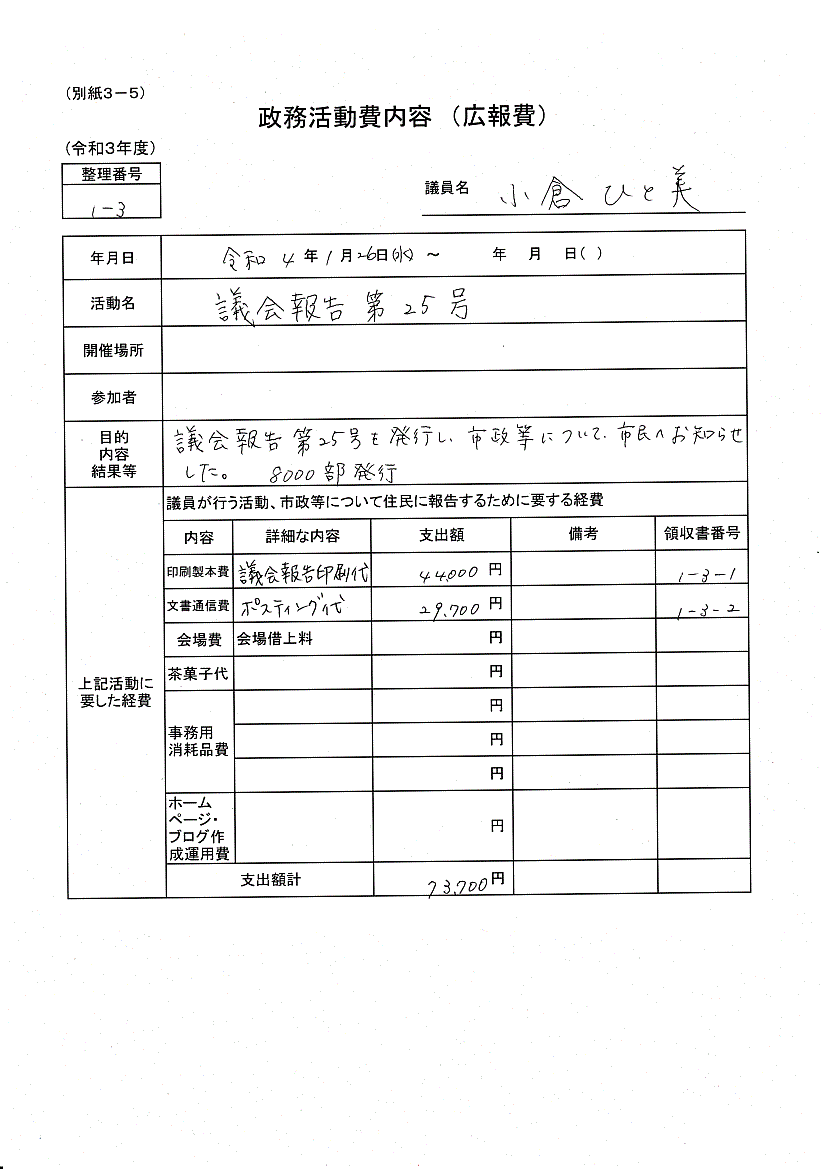 (別紙3-5)
政務活動費内容 (広報費)
(令和3年度)
整理番号
1-3
議員名 小倉 ひと美
年月日 令和 4 年 1 月 26 日(水) ~ 年 月 日( )
活動名 議会報告 第 25 号
開催場所
参加者
目的
内容
結果等
議会報告 第25号を発行し、市政等について、市民へお知らせ
した。 8000 部発行
上記活動に
要した経費
議員が行う活動、市政等について住民に報告するために要する経費
内容 詳細な内容 支出額 備考 領収書番号
印刷製本費 議会報告印刷代 44,000 円 1-3-1
文書通信費 ポスティング代 29,700 円 1-3-2
会場費 会場借上料 円
茶菓子代 円
事務用
消耗品費
円
円
円
ホーム
ページ・
ブログ作
成運用費
円
支出額計 73,700 円